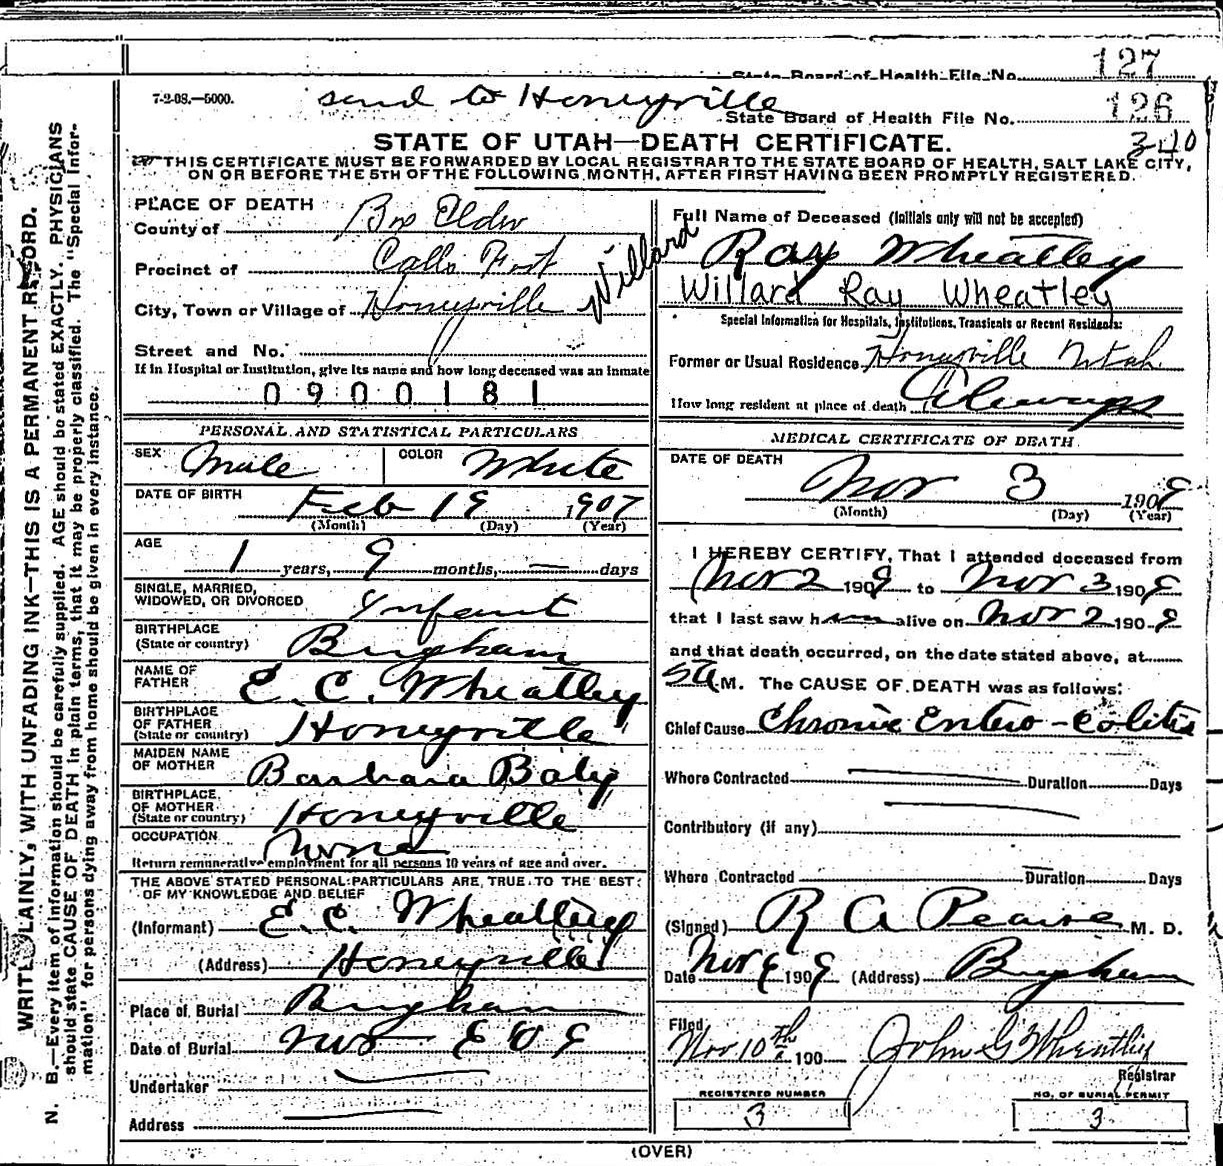 127
State Board of Health File No.
7-2-08.—5000.
send to Honeyville
126
State Board of Health File No.
STATE OF UTAH—DEATH CERTIFICATE.
THIS CERTIFICATE MUST BE FORWARDED BY LOCAL REGISTRAR TO THE STATE BOARD OF HEALTH, SALT LAKE CITY,
ON OR BEFORE THE 5TH OF THE FOLLOWING MONTH, AFTER FIRST HAVING BEEN PROMPTLY REGISTERED.
PLACE OF DEATH
County of Box Elder
Precinct of Calls Fort
City, Town or Village of Honeyville
Willard
Street and No.
If in Hospital or Institution, give its name and how long deceased was an inmate
0900181
PERSONAL AND STATISTICAL PARTICULARS
SEX Male COLOR White
DATE OF BIRTH Feb 19 1907
(Month) (Day) (Year)
AGE
1 years, 9 months, — days
SINGLE, MARRIED,
WIDOWED, OR DIVORCED Infant
BIRTHPLACE
(State or country) Brigham
NAME OF
FATHER E. C. Wheatley
BIRTHPLACE
OF FATHER
(State or country) Honeyville
MAIDEN NAME
OF MOTHER Barbara Boly
BIRTHPLACE
OF MOTHER
(State or country) Honeyville
OCCUPATION None
Return remunerative employment for all persons 10 years of age and over.
THE ABOVE STATED PERSONAL PARTICULARS ARE TRUE TO THE BEST
OF MY KNOWLEDGE AND BELIEF
(Informant) E. C. Wheatley
(Address) Honeyville
Place of Burial Brigham
Date of Burial Nov
Undertaker
Address
Full Name of Deceased (Initials only will not be accepted)
Ray Wheatley
Willard Ray Wheatley
Special Information for Hospitals, Institutions, Transients or Recent Residents:
Former or Usual Residence Honeyville Utah
How long resident at place of death Always
MEDICAL CERTIFICATE OF DEATH
DATE OF DEATH
Nov 3 1909
(Month) (Day) (Year)
I HEREBY CERTIFY, That I attended deceased from
Nov 2 1909 to Nov 3 1909
that I last saw him alive on Nov 2 1909
and that death occurred, on the date stated above, at
5 a M. The CAUSE OF DEATH was as follows:
Chief Cause Chronic Entero-colitis
Where Contracted Duration Days
Contributory (if any)
Where Contracted Duration Days
(Signed) R A Pearse M. D.
Date Nov 1909 (Address) Brigham
Filed
Nov 10th 190 John G Wheatley
Registrar
REGISTERED NUMBER
3
NO. OF BURIAL PERMIT
3
(OVER)
WRITE PLAINLY, WITH UNFADING INK—THIS IS A PERMANENT RECORD.
N. B.—Every item of information should be carefully supplied. AGE should be stated EXACTLY. PHYSICIANS
should state CAUSE OF DEATH in plain terms, that it may be properly classified. The "Special Infor-
mation" for persons dying away from home should be given in every instance.